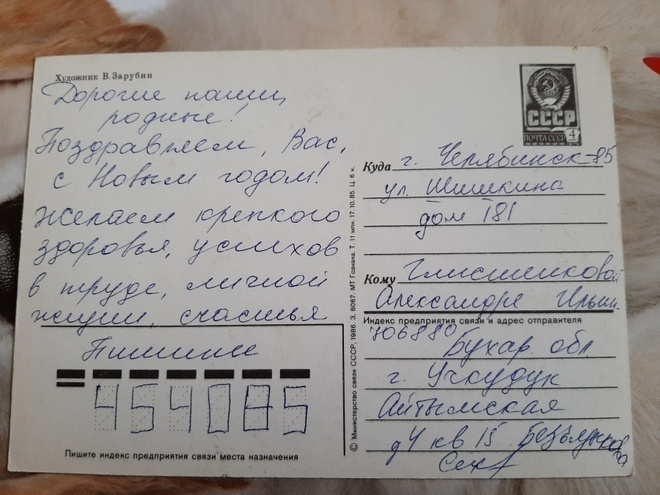 Художник В. Зарубин
Дорогие наши,
родные!
Поздравляем, Вас,
с Новым годом!
Желаем крепкого
здоровья, успехов
в труде, личной
жизни, счастья
Пишите
454085
Пишите индекс предприятия связи места назначения
© Министерство связи СССР, 1986. З. 6067. МТ Гознака. Т. 11 млн. 17.10.85. Ц. 6 к.
СССР
ПОЧТА СССР 4
Куда г. Челябинск-85
ул. Шишкина
дом 181
Кому
Александре Ильин.
Индекс предприятия связи и адрес отправителя
706880
Бухар. обл
г. Учкудук
Айтымская
д 4 кв 15